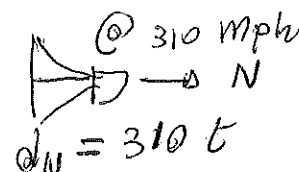 @ 310 mph
N
d_N = 310 t